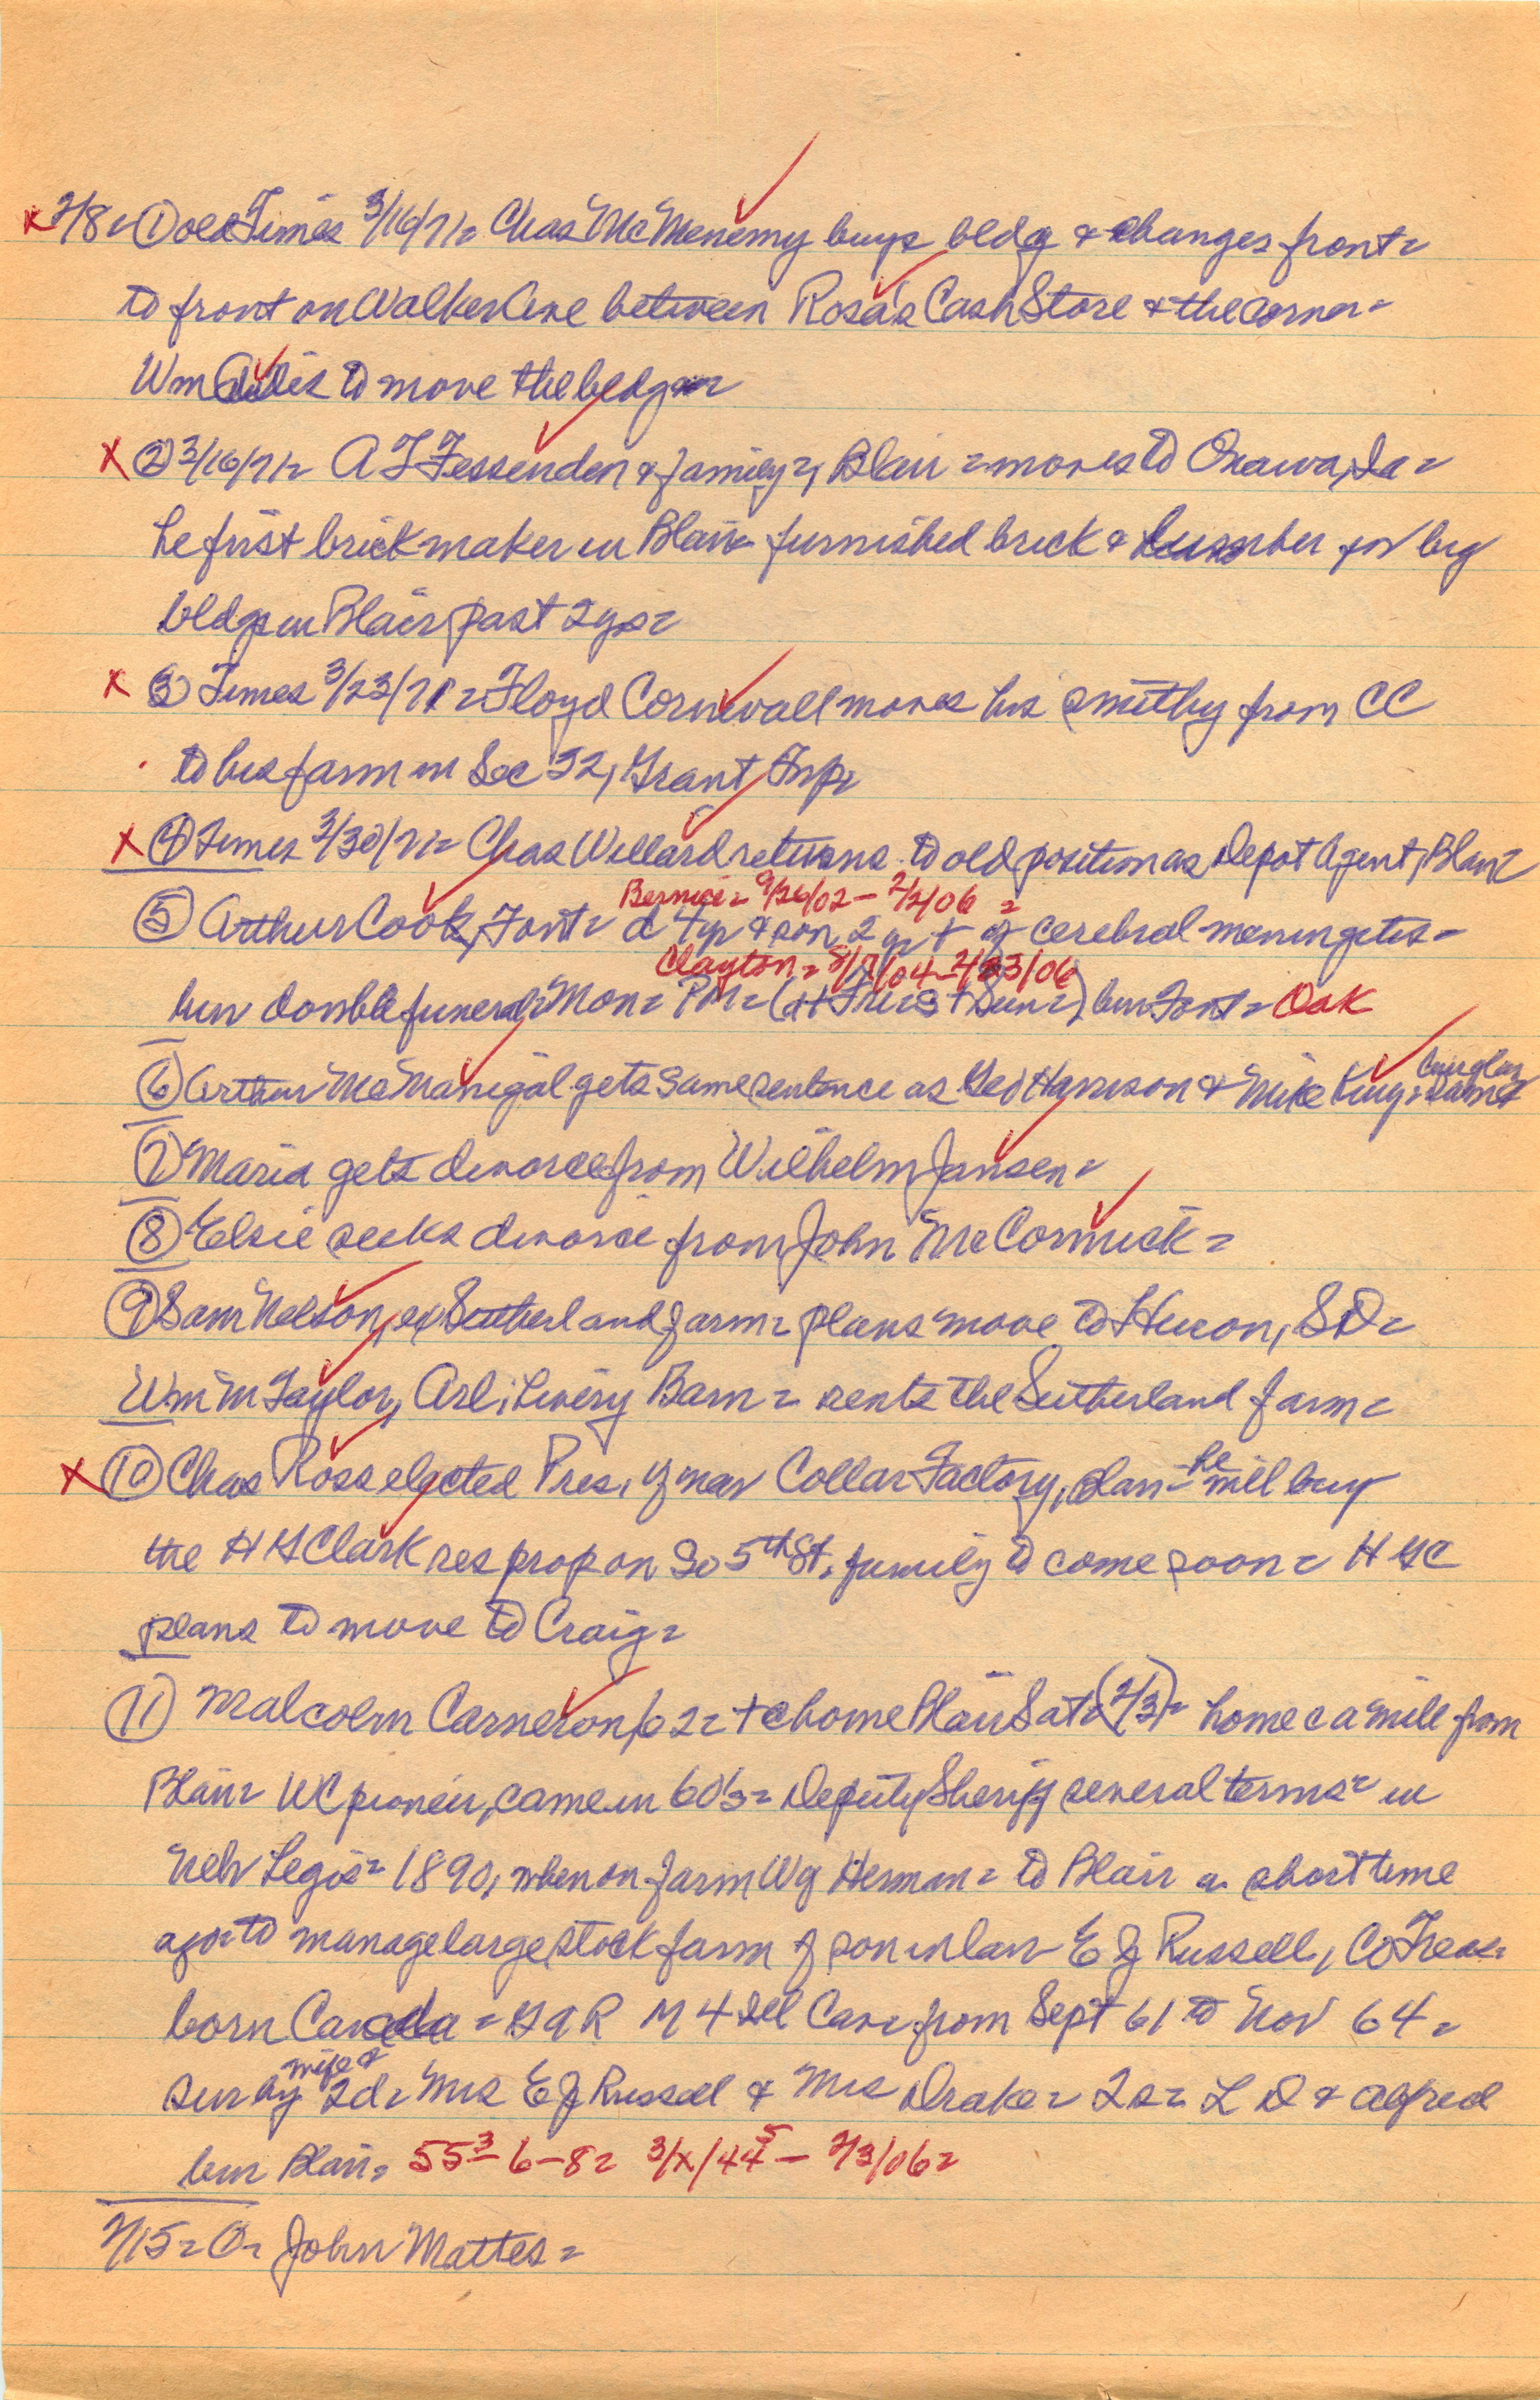 x 2/8 = ① old Times 3/16/71 = Chas McMenemy buys bldg & changes front =
to front on Walker Ave between Rosa's Cash Store & the corner =
Wm to move the bldg =
x ② 3/16/71 = A T Fessenden & family =, Blair = moves to Onawa, Ia =
he first brick maker in Blair furnished brick & lumber for big
bldgs in Blair past 2 yrs =
x ③ Times 3/23/71 = Floyd Cornwall moves his smithy from CC
to his farm in Sec 32, Grant Twp =
x ④ Times 3/30/71 = Chas Willard returns to old position as Depot Agent, Blair =
Bernice = 9/26/02 – 2/2/06 =
⑤ Arthur Cook, Font = d 4 yr & son 2 yr + of cerebral meningetis =
Clayton = 8/ /04 – 2/3/06
bur double funeral = Mon = PM = (d + Fri = s + Sun =) bur Font = Oak
⑥ Arthur McManigal gets same sentence as Geo Harrison & Mike King = same
burglary
⑦ Maria gets divorce from Wilhelm Jansen =
⑧ Elsie seeks divorce from John McCormick =
⑨ Sam Nelson, ex Sutherland farm = plans move to Huron, SD =
Wm M Taylor, Arl; Livery Barn = rents the Sutherland farm =
x ⑩ Chas Ross elected Pres. of new Collar Factory, Blair = he will buy
the H G Clark res prop on So 5th St. family to come soon = H G C
plans to move to Craig =
⑪ Malcolm Cameron, 62 = + @ home Blair Sat = (2/3) = home c a mile from
Blair = WC pioneer, came in 60's = Deputy Sheriff several terms = in
Neb Legis = 1890, when on farm W of Herman = to Blair a short time
ago = to manage large stock farm of son in law E J Russell, Co Treas =
born Canada = GAR M 4 Ill Cav = from Sept 61 to Nov 64 =
sur by wife & 2d = Mrs E J Russell & Mrs Drake = 2s = L D & Alfred
bur Blair = 55 3 – 6 – 8 = 3/x/44 5 – 2/3/06 =
2/15 = O = John Mattes =